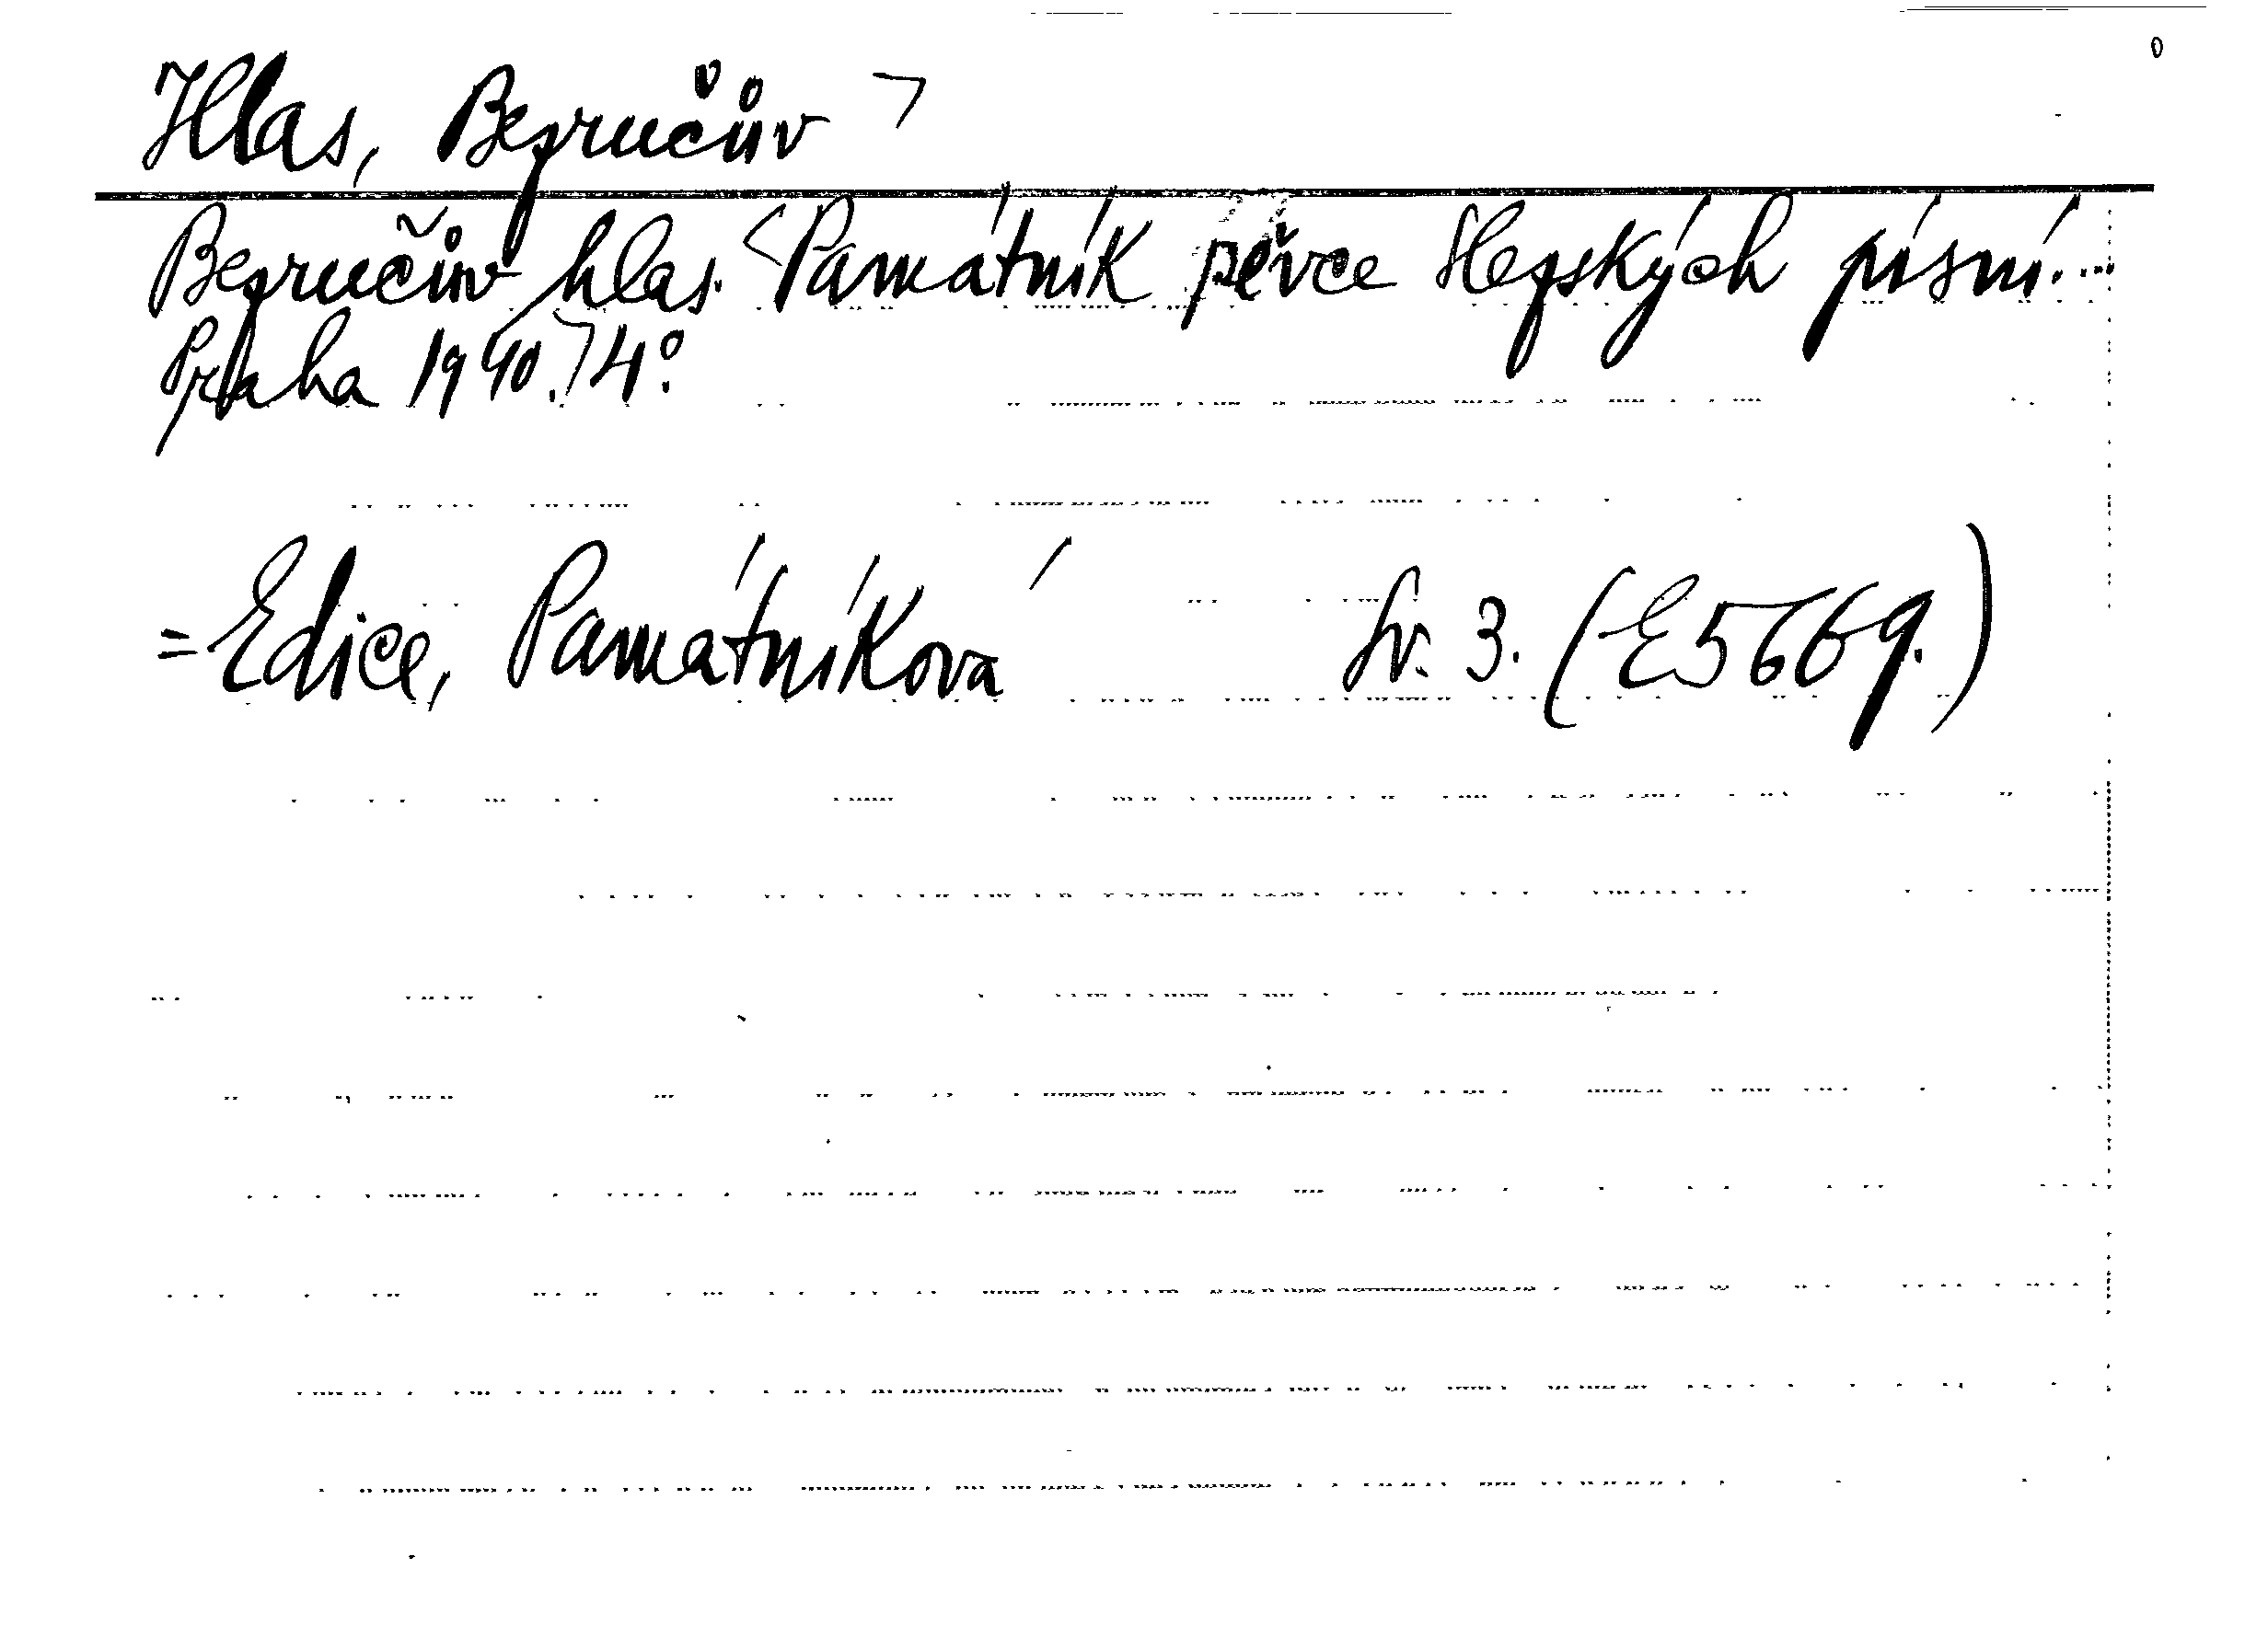 Hlas, Bezručův >
Bezručův hlas. <Památník pěvce Slezských písní...
Praha 1940.> 4°.
= Edice, Památníková Sv. 3. (E5669.)